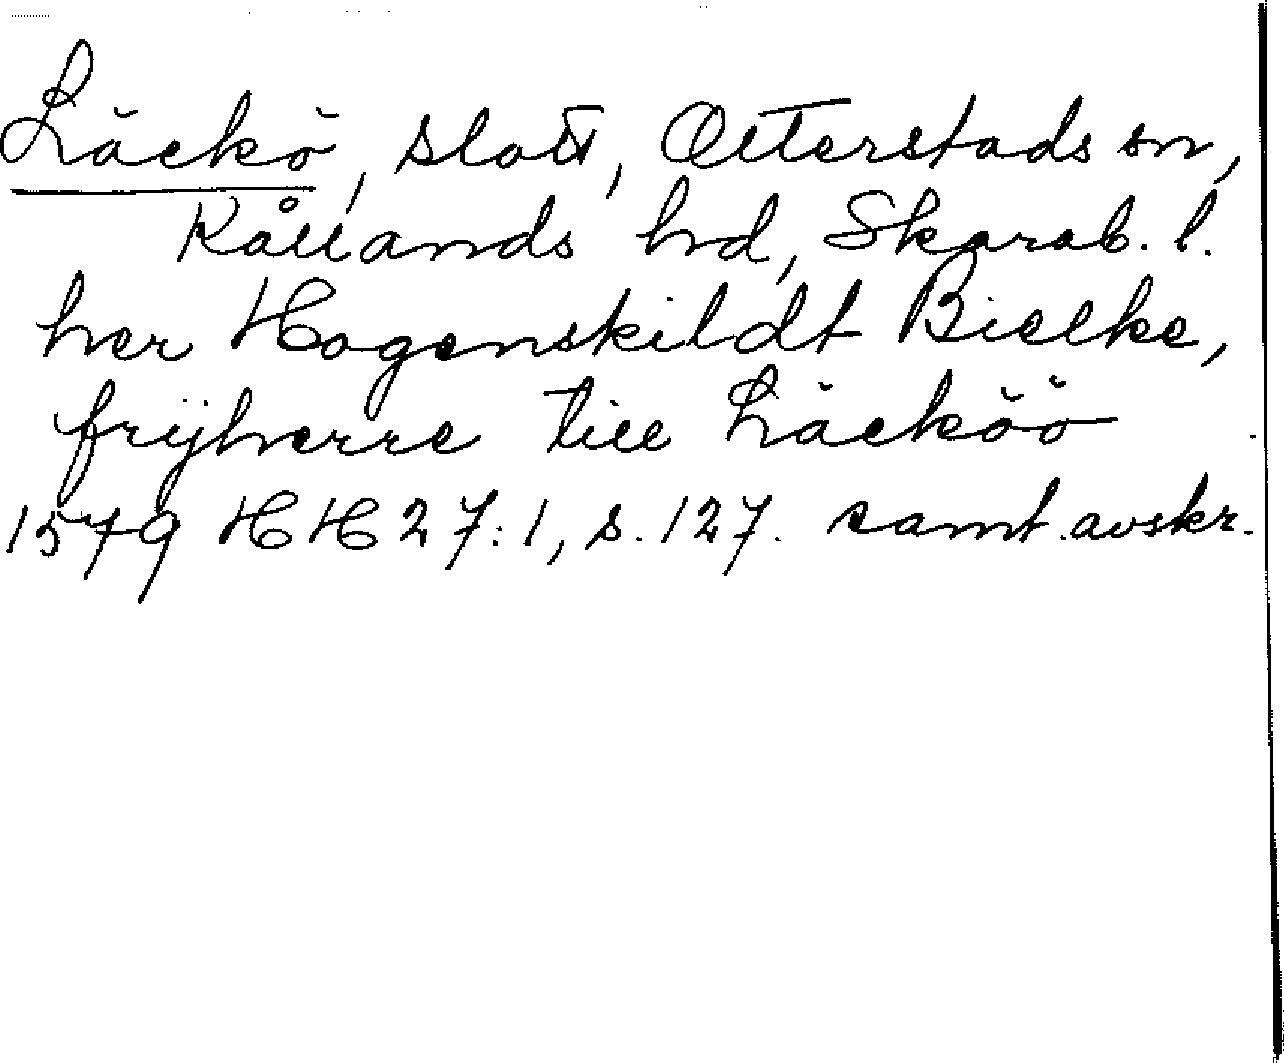 Läckö, slott, Otterstads sn,
Kållands hd, Skarab. l.
her Hogenskildt Bielke,
frijherre till Läcköö
1579 HH 27:1, s. 127. samt. avskr.